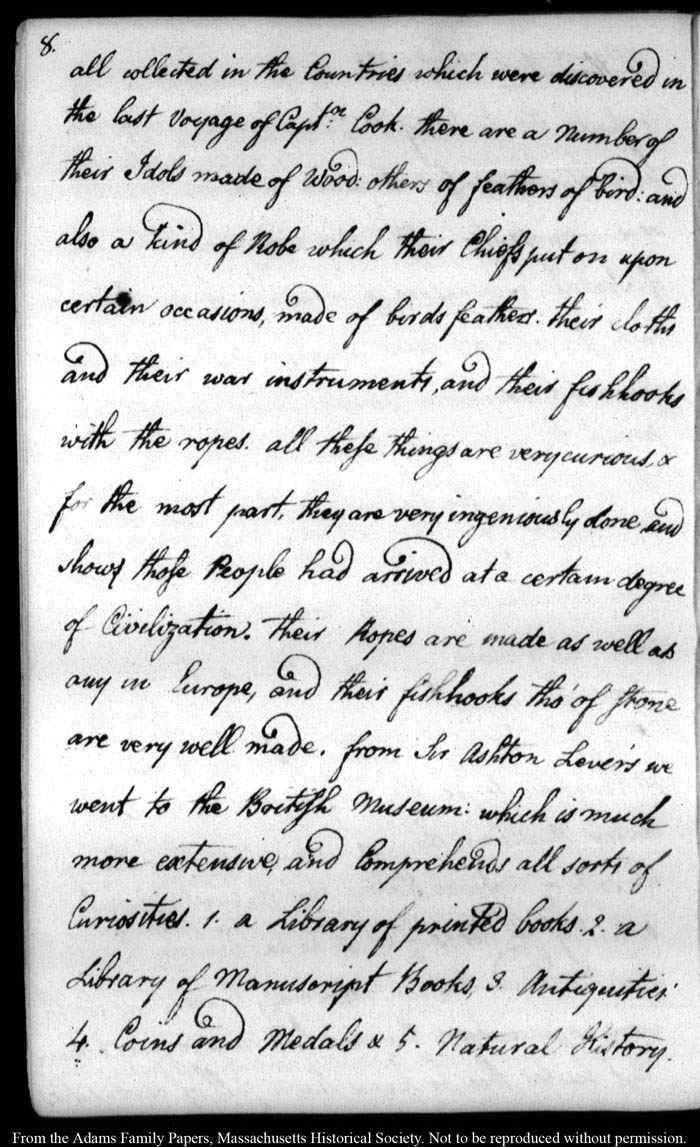 8.
all collected in the Countries which were discovered in
the last Voyage of Capt:n Cook. there are a Number of
their Idols made of Wood: others of feathers of bird: and
also a kind of Robe which their Chiefs put on upon
certain occasions, made of birds feathers. their cloths
and their war instruments, and their fishhooks
with the ropes. all these things are very curious, &
for the most part, they are very ingeniously done and
shows those People had arrived at a certain degree
of Civilization. their Ropes are made as well as
any in Europe, and their fishhooks tho' of stone
are very well made. from Sir Ashton Lever's we
went to the British Museum: which is much
more extensive, and Comprehends all sorts of
Curiosities. 1. a Library of printed books. 2. a
Library of Manuscript Books, 3. Antiquities
4. Coins and Medals & 5. Natural History.
From the Adams Family Papers, Massachusetts Historical Society. Not to be reproduced without permission.